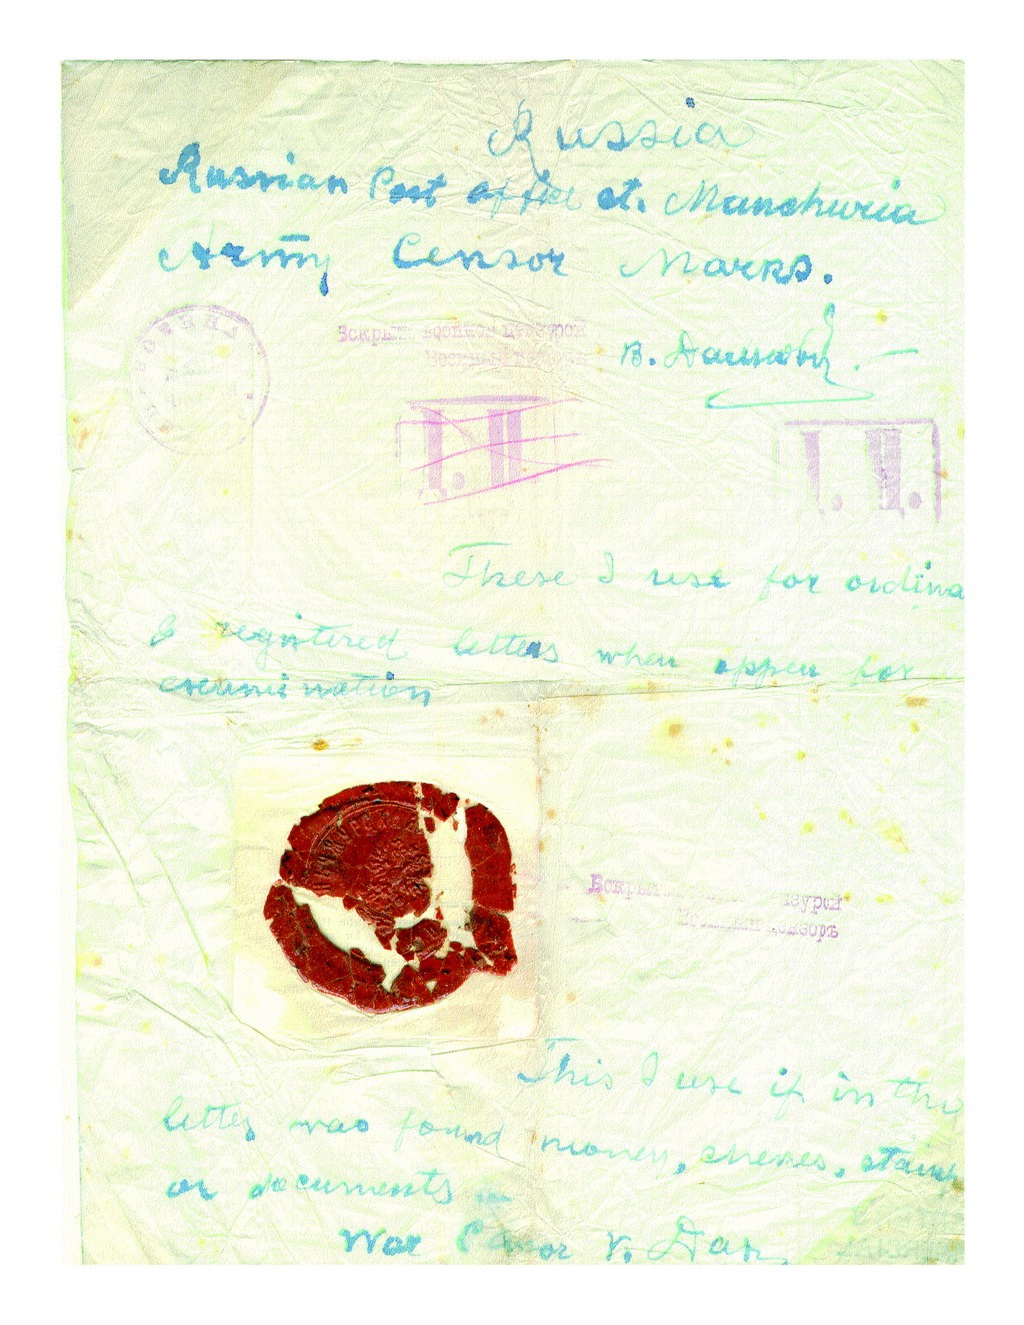 Russia
Russian Post office at. Manchuria
Army Censor Marks.
Вскрыто военной цензурой
Военный цензоръ
В.
Д. Ц.
Д. Ц.
These I use for ordina
& registered letters when oppen for
examination
Вскрыто цензурой
Военный цензоръ
This I use if in the
letter was found money, chekes, stamp
or documents
War Censor V. Dan